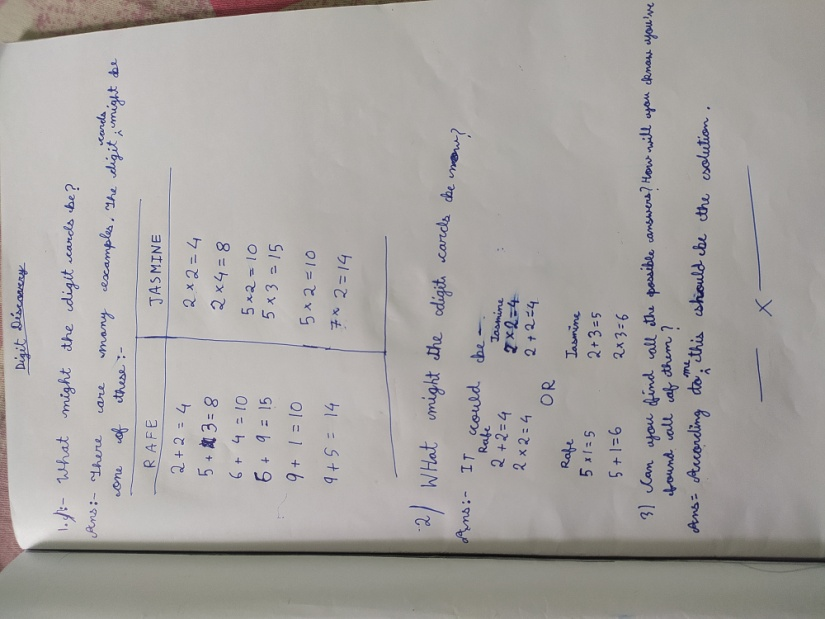 Digit Discovery
1.):- What might the digit cards be?
Ans:- There are many examples. The digit cards might be
one of these:-
RAFE JASMINE
2 + 2 = 4 2 × 2 = 4
5 + 3 = 8 2 × 4 = 8
6 + 4 = 10 5 × 2 = 10
6 + 9 = 15 5 × 3 = 15
9 + 1 = 10 5 × 2 = 10
9 + 5 = 14 7 × 2 = 14
2) WHat might the digit cards be now?
Ans:- IT could be -
Rafe Jasmine
2 + 2 = 4 2 × 2 = 4
2 × 2 = 4 2 + 2 = 4
OR
Rafe Jasmine
5 × 1 = 5 2 + 3 = 5
5 + 1 = 6 2 × 3 = 6
3) Can you find all the possible answers? How will you know you've
found all of them?
Ans= According to me, this should be the solution.